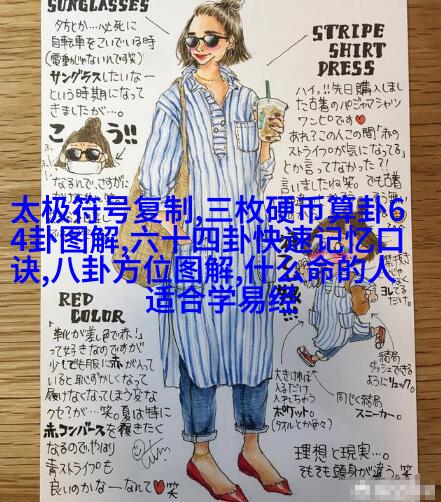 SUNGLASSES
夕方とか…必死に
自転車をこいでいる時
(電動じゃないんでね笑)
サングラスしたいなー
という時期になって
きましたが…。
こう!!
STRIPE
SHIRT
DRESS
ハイッ!!先日購入しました
古着のパジャマシャツ
ワンピです♥
あれ?この人この間「赤の
ストライプが気になってる」
とか言ってなかった?!
言いましたね笑。でも古着
太极符号复制,三枚硬币算卦6
4卦图解,六十四卦快速记忆口
诀,八卦方位图解,什么命的人
适合学易经
RED
COLOR
靴が差し色で赤!」
って好きなのですが
少しでも服に赤が入って
いると恥ずかしくなって
履けなくなってしまう変な
クセが…笑。夏は特に
赤コンバースを履きたく
なるので、やはり
青ストライプも
良いのかなーなんて♥笑
大きければ
入るだけ
入れちゃう
ポケット。
結局
ダッシュできる
ようにリュック。
同じく結局
スニーカー。
理想と現実…。
そもそも頭身が違う。笑